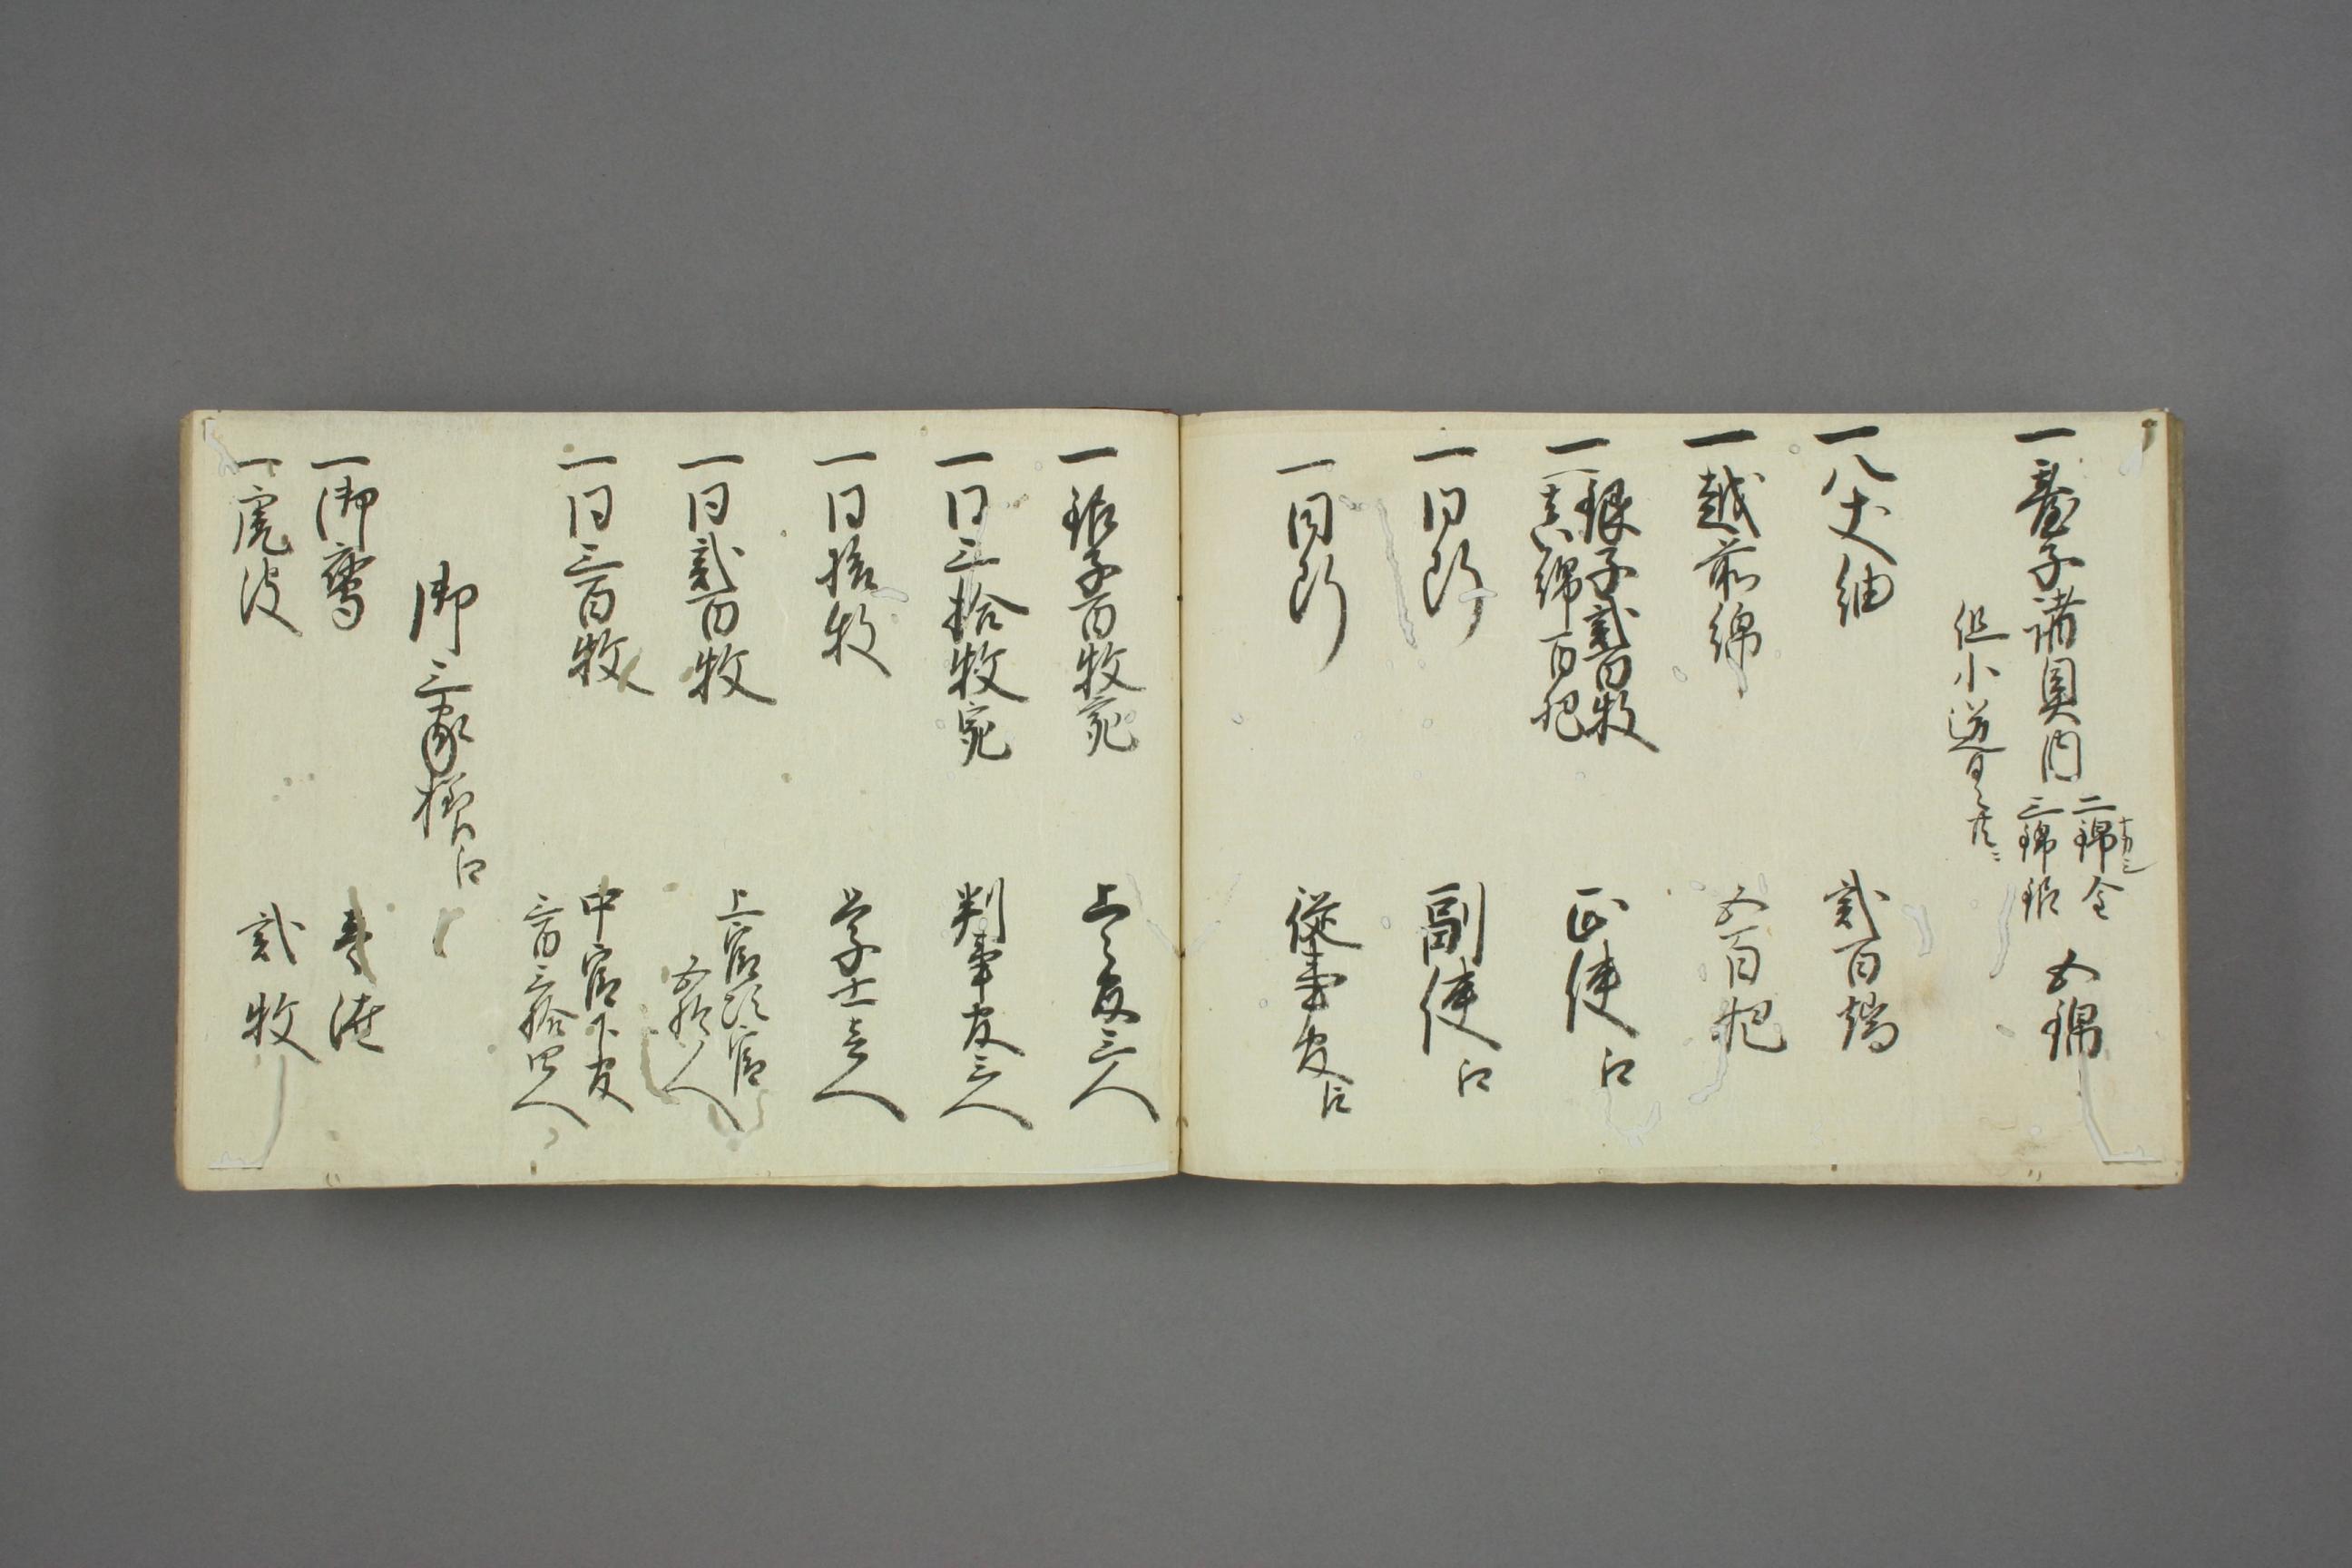 一臺子諸具内 二錦金 三錦銀 五錦
但小道具
一八丈紬 貳百端
一越前綿 五百把
一銀子貳百枚 正使江
一真綿百把
一同断 副使江
一同断 従事官江
一銀子百枚宛 上々官三人
一同三拾枚宛 判事官三人
一同拾枚 学士壱人
一同貳百枚 上官次官 五拾人
一同三百枚 中官下官
三百三拾四人
御三家様江
一御鷹 壱連
一虎皮 貳枚